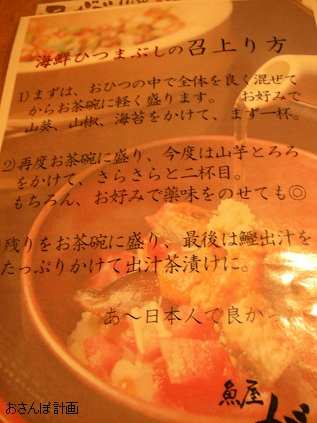 海鮮ひつまぶしの召上り方
1)まずは、おひつの中で全体を良く混ぜて
からお茶碗に軽く盛ります。 お好みで
山葵、山椒、海苔をかけて、まず一杯。
2)再度お茶碗に盛り、今度は山芋とろろ
をかけて、さらさらと二杯目。
もちろん、お好みで薬味をのせても◎
残りをお茶碗に盛り、最後は鰹出汁を
たっぷりかけて出汁茶漬けに。
あ～日本人で良か
魚屋
おさんぽ計画